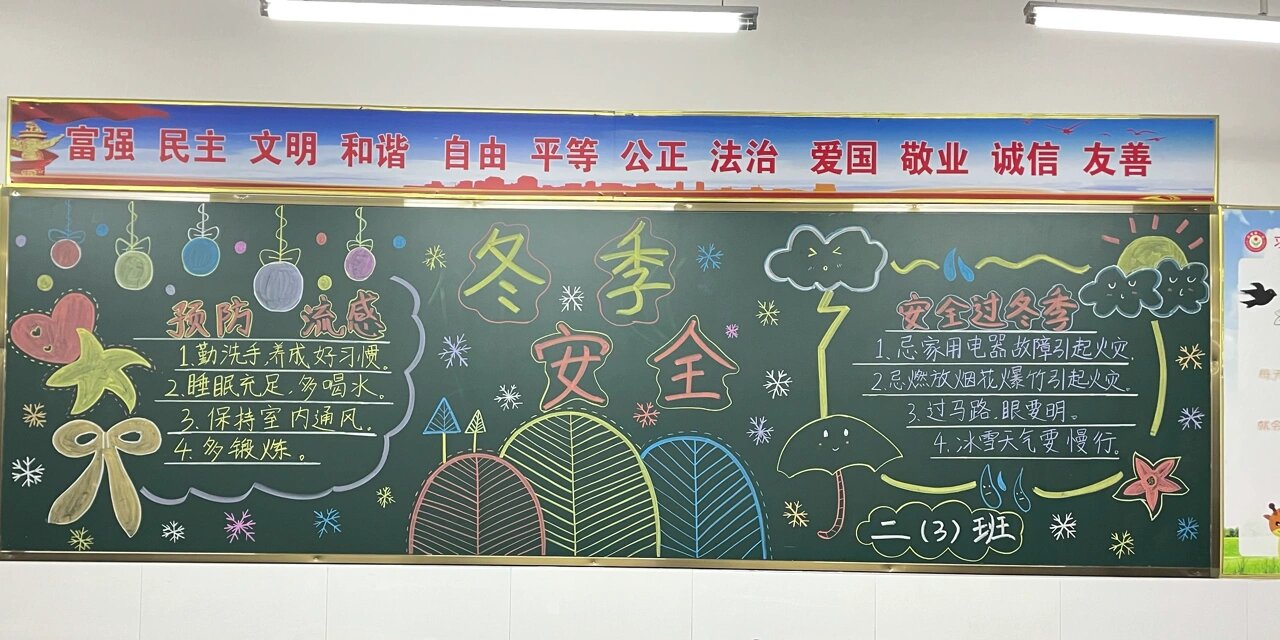 富强 民主 文明 和谐 自由 平等 公正 法治 爱国 敬业 诚信 友善
冬季
安全
预防 流感
1.勤洗手养成好习惯。
2.睡眠充足.多喝水。
3.保持室内通风。
4.多锻炼。
安全过冬季
1.忌家用电器故障引起火灾.
2.忌燃放烟花爆竹引起火灾.
3.过马路.眼要明。
4.冰雪天气要慢行.
二(3)班
每天
就会